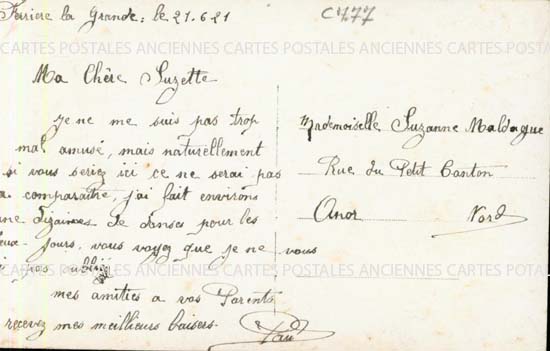 Ferrière la Grande, le 21.6.21
C477
CARTES POSTALES ANCIENNES CARTES POSTALES ANCIENNES CARTES POSTALES
Ma Chère Suzette
Je ne me suis pas trop
mal amusé, mais naturellement
si vous seriez ici ce ne serai pas
a comparaître, j'ai fait environs
une dizaines de danses pour les
deux jours, vous voyez que je ne vous
pas oublié
mes amitiés a vos Parents
recevez mes meilleurs baisers
Paul
Mademoiselle Suzanne Maldague
Rue du Petit Canton
Anor Nord